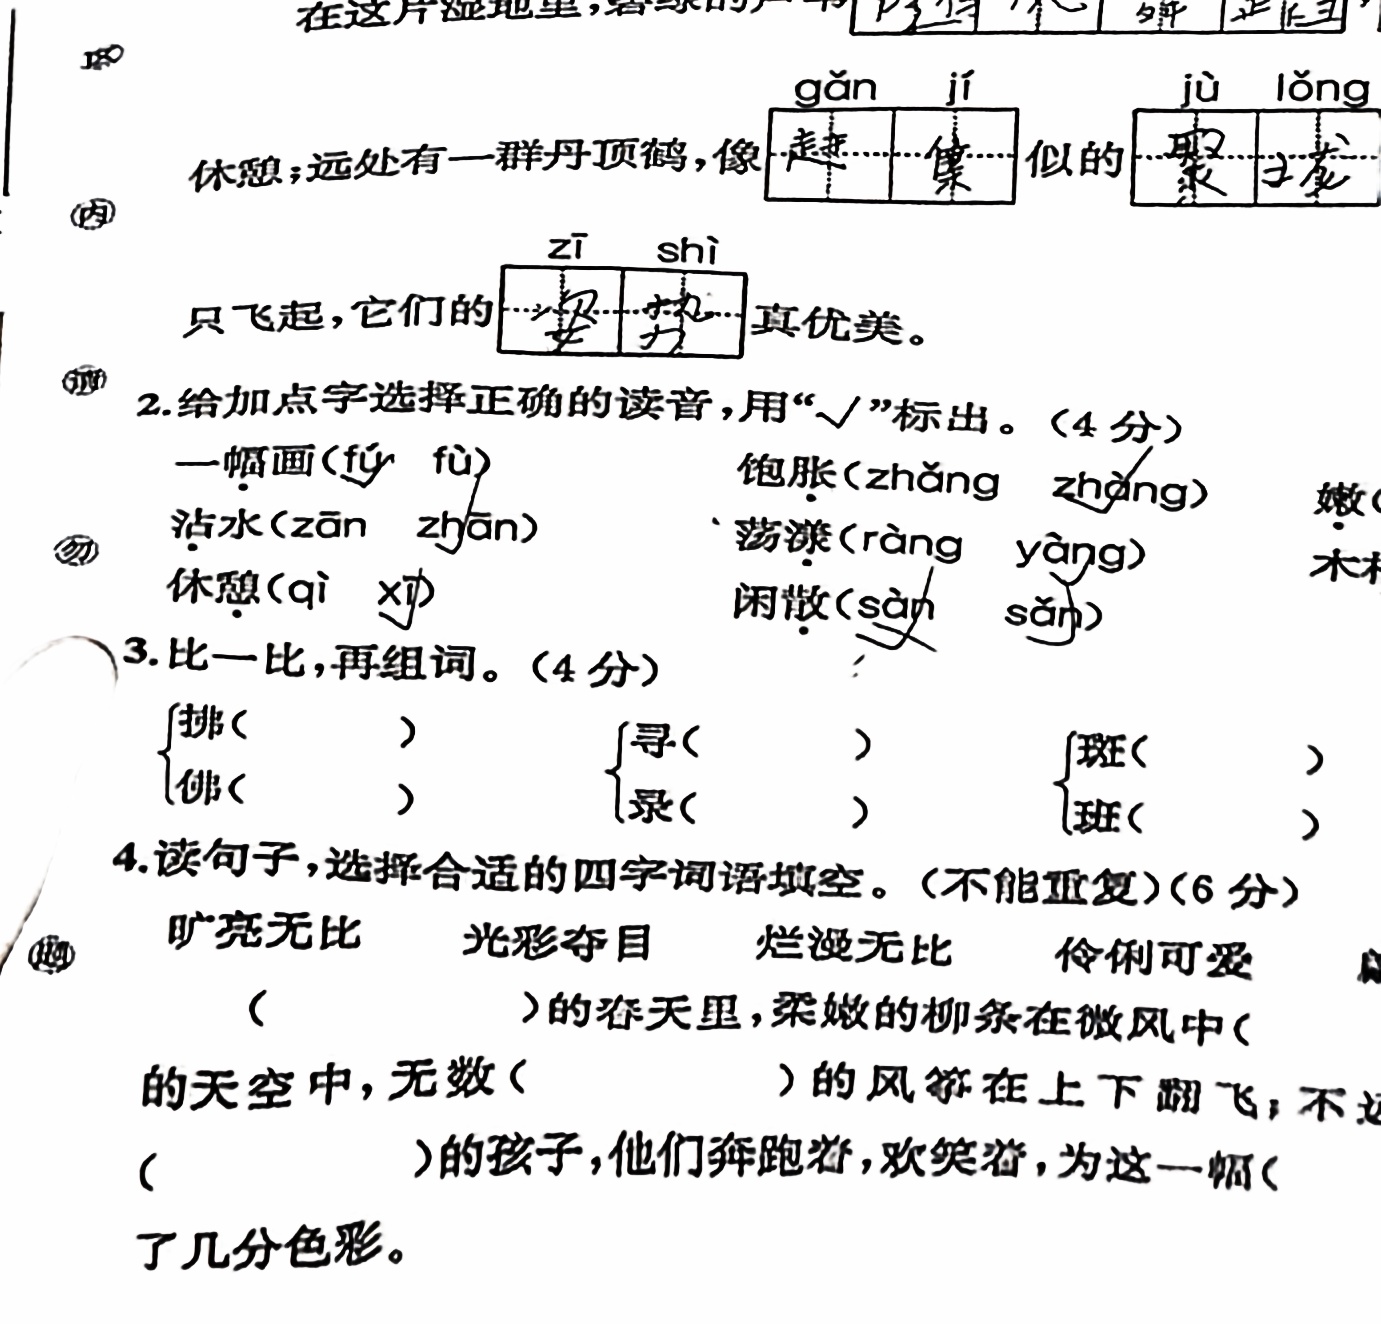 在这片湿地里,碧绿的芦苇
gǎn jí jù lǒng
休憩;远处有一群丹顶鹤,像赶集似的聚拢
zī shì
只飞起,它们的姿势真优美。
2.给加点字选择正确的读音,用“√”标出。(4分)
一幅画(fú fù) 饱胀(zhǎng zhàng) 嫩(
沾水(zān zhān) 荡漾(ràng yàng) 木
休憩(qì xī) 闲散(sàn sǎn)
3.比一比,再组词。(4分)
拂( ) 寻( ) 斑( )
佛( ) 录( ) 班( )
4.读句子,选择合适的四字词语填空。(不能重复)(6分)
嘹亮无比 光彩夺目 烂漫无比 伶俐可爱
( )的春天里,柔嫩的柳条在微风中(
的天空中,无数( )的风筝在上下翻飞;不
( )的孩子,他们奔跑着,欢笑着,为这一幅(
了几分色彩。
内